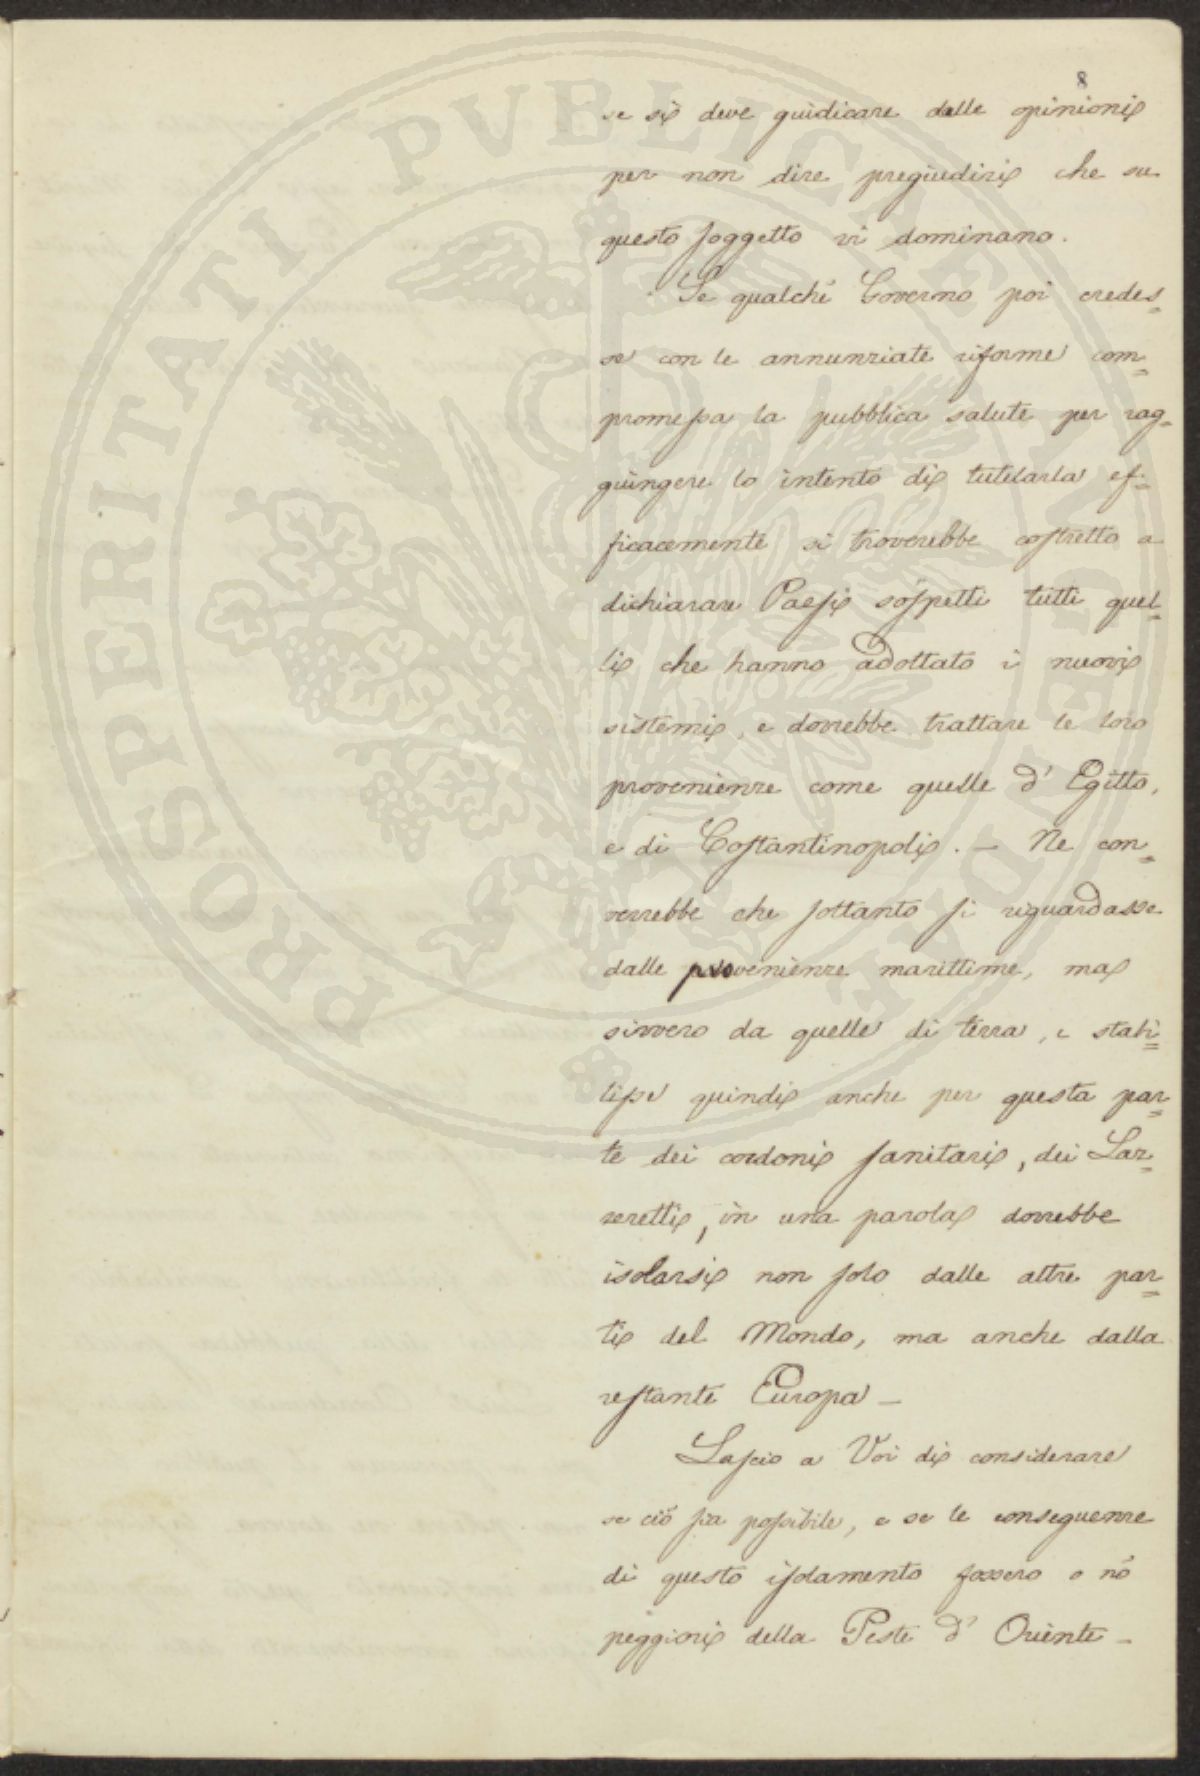 8
se si deve guidicare dalle opinioni
per non dire pregiudizi che su
questo soggetto vi dominano.
Se qualche Governo poi credes=
se con le annunziate riforme com=
promessa la pubblica salute per rag=
guingere lo intento di tutelarla ef=
ficacemente si troverebbe costretto a
dichiarare Paesi sospetti tutti quel=
li che hanno adottato i nuovi
sistemi, e dovrebbe trattare le loro
provenienze come quelle d' Egitto,
e di Costantinopoli. — Ne con=
verrebbe che soltanto si riguardasse
dalle provenienze marittime, ma
sivvero da quelle di terra, e stabi=
lisse quindi anche per questa par=
te dei cordoni sanitari, dei Laz=
zeretti, in una parola dovrebbe
isolarsi non solo dalle altre par=
ti del Mondo, ma anche dalla
restante Europa —
Lascio a Voi di considerare
se ciò sia possibile, e se le conseguenze
di questo isolamento fossero o nò
peggiori della Peste d' Oriente —
PROSPERITATI PVBLICAE AVGENDAE